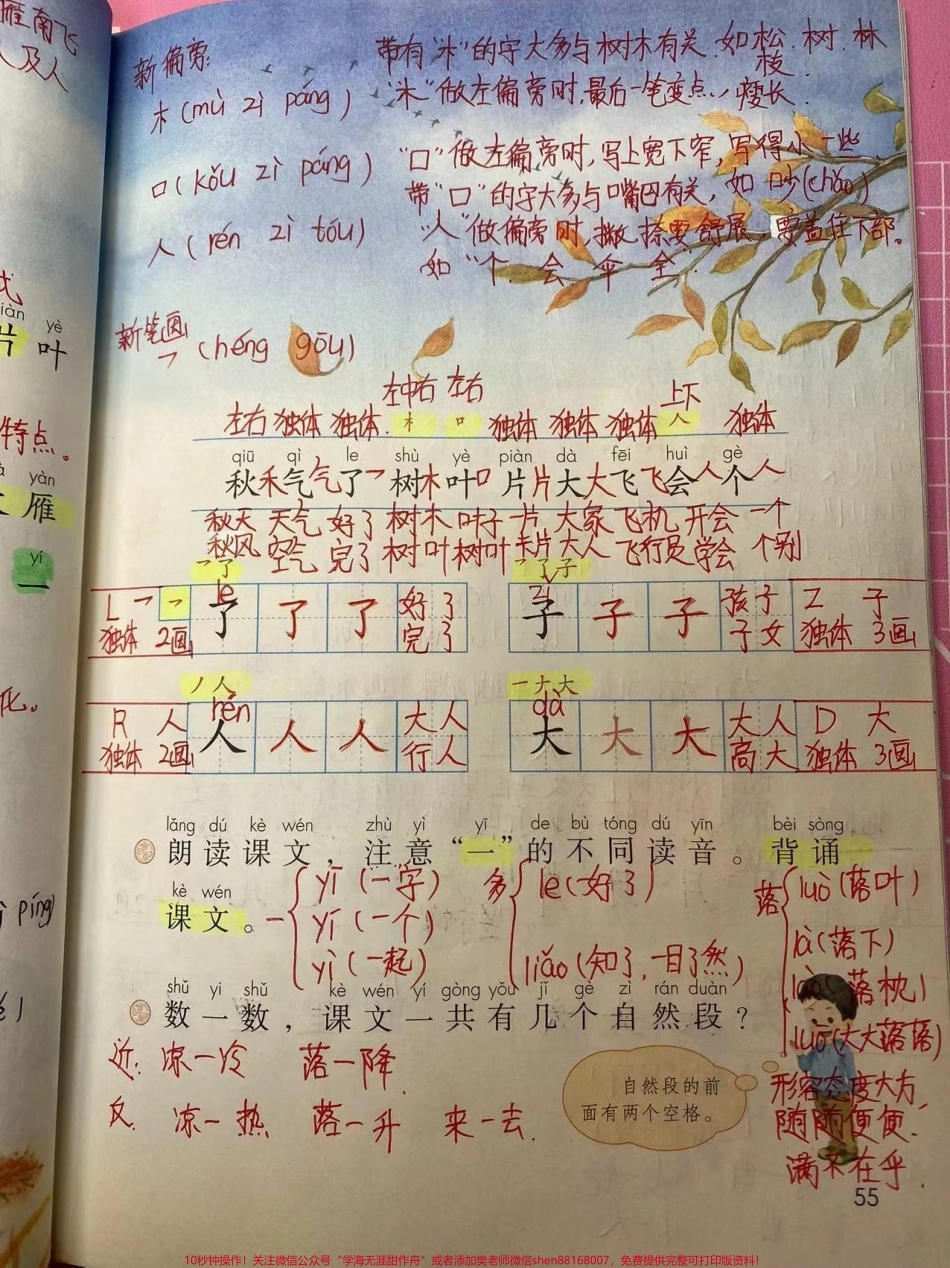 雁南飞
人及人
式
iàn yè
片 叶
特点。
yàn
雁
yí
一
化。
píng)
新偏旁:
带有“木”的字大多与树木有关.如松.树.林
枝
木(mù zì páng)
“木”做左偏旁时,最后一笔变点.,瘦长.
口(kǒu zì páng)
“口”做左偏旁时,写上宽下窄,写得小一些.
带“口”的字大多与嘴巴有关,如 吵(chǎo)
人(rén zì tóu)
“人”做偏旁时,撇捺要舒展,要盖住下部。
如“个.会 伞 全”
新笔画
㇖(héng gōu)
左中右 左右 上下
左右 独体 独体. 木 口 独体 独体 独体 人 独体
qiū qì le shù yè piàn dà fēi huì gè
秋禾气气了㇖树木叶口片片大大飞飞会人个人
秋天 天气 好了 树木 叶子 一片 大家 飞机 开会 一个
秋风 空气 完了 树叶 树叶 卡片 大人 飞行员 学会 个别
㇖了 ㇖了子
le zǐ
L ㇖ ㇖ 了 了 了 好了 子 子 子 孩子 Z 子
独体 2画 完了 子女 独体 3画
丿人 一ナ大
rén dà
R 人 人 人 人 大人 大 大 大 大人 D 大
独体 2画 行人 高大 独体 3画
lǎng dú kè wén zhù yì yī de bù tóng dú yīn bèi sòng
朗读课文，注意“一”的不同读音。背诵
kè wén
课文。
一 yī(一字) 多 le(好了) 落 luò(落叶)
yí(一个) là(落下)
yì(一起) liǎo(知了,一目了然) lào(落枕)
luō(大大落落)
shǔ yi shǔ kè wén yí gòng yǒu jǐ gè zì rán duàn
数一数，课文一共有几个自然段？
近: 凉—冷 落—降
反. 凉—热 落—升 来—去.
自然段的前
面有两个空格。
形容态度大方,
随随便便.
满不在乎.
55
10秒钟操作！关注微信公众号“学海无涯甜作舟”或者添加樊老师微信shen88168007，免费提供完整可打印版资料！